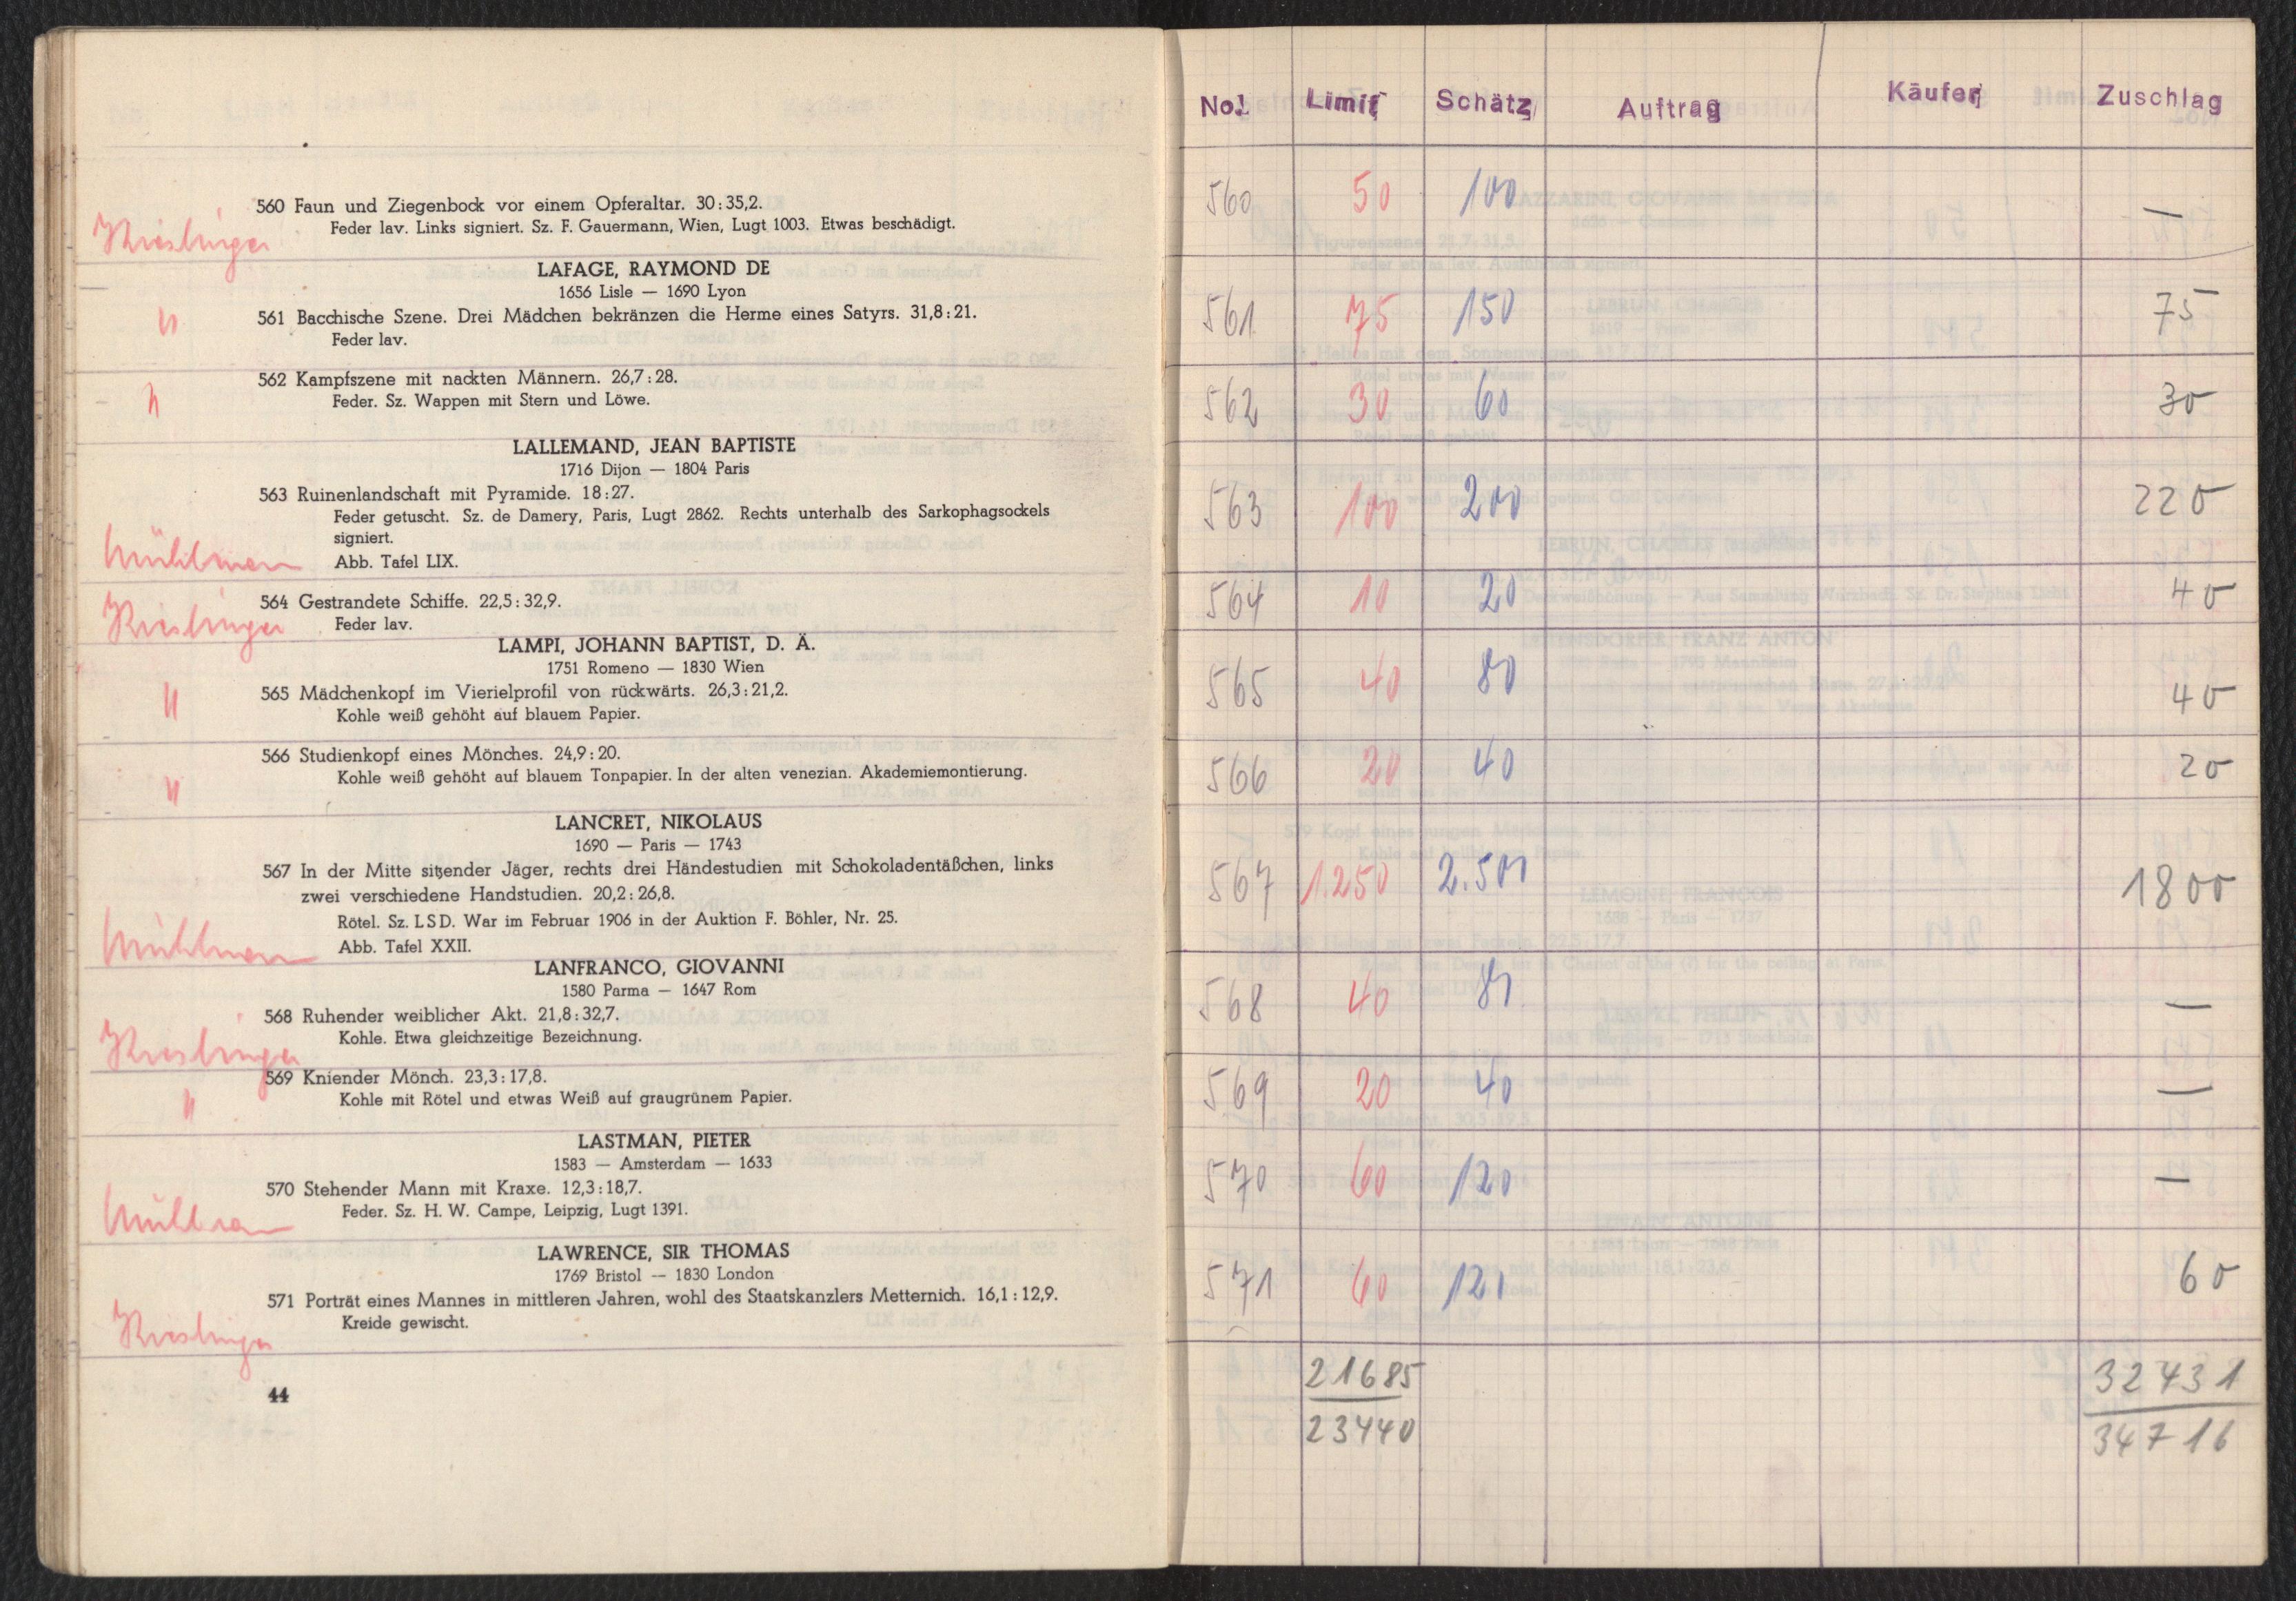 560 Faun und Ziegenbock vor einem Opferaltar. 30:35,2.
Feder lav. Links signiert. Sz. F. Gauermann, Wien, Lugt 1003. Etwas beschädigt.
LAFAGE, RAYMOND DE
1656 Lisle — 1690 Lyon
"
561 Bacchische Szene. Drei Mädchen bekränzen die Herme eines Satyrs. 31,8:21.
Feder lav.
"
562 Kampfszene mit nackten Männern. 26,7:28.
Feder. Sz. Wappen mit Stern und Löwe.
LALLEMAND, JEAN BAPTISTE
1716 Dijon — 1804 Paris
563 Ruinenlandschaft mit Pyramide. 18:27.
Feder getuscht. Sz. de Damery, Paris, Lugt 2862. Rechts unterhalb des Sarkophagsockels
signiert.
Mühlmann Abb. Tafel LIX.
564 Gestrandete Schiffe. 22,5:32,9.
Feder lav.
LAMPI, JOHANN BAPTIST, D. Ä.
1751 Romeno — 1830 Wien
"
565 Mädchenkopf im Vierielprofil von rückwärts. 26,3:21,2.
Kohle weiß gehöht auf blauem Papier.
566 Studienkopf eines Mönches. 24,9:20.
"
Kohle weiß gehöht auf blauem Tonpapier. In der alten venezian. Akademiemontierung.
LANCRET, NIKOLAUS
1690 — Paris — 1743
567 In der Mitte sitzender Jäger, rechts drei Händestudien mit Schokoladentäßchen, links
zwei verschiedene Handstudien. 20,2:26,8.
Rötel. Sz. LSD. War im Februar 1906 in der Auktion F. Böhler, Nr. 25.
Mühlmann Abb. Tafel XXII.
LANFRANCO, GIOVANNI
1580 Parma — 1647 Rom
568 Ruhender weiblicher Akt. 21,8:32,7.
Kohle. Etwa gleichzeitige Bezeichnung.
569 Kniender Mönch. 23,3:17,8.
"
Kohle mit Rötel und etwas Weiß auf graugrünem Papier.
LASTMAN, PIETER
1583 — Amsterdam — 1633
570 Stehender Mann mit Kraxe. 12,3:18,7.
Mühlmann Feder. Sz. H. W. Campe, Leipzig, Lugt 1391.
LAWRENCE, SIR THOMAS
1769 Bristol — 1830 London
571 Porträt eines Mannes in mittleren Jahren, wohl des Staatskanzlers Metternich. 16,1:12,9.
Kreide gewischt.
44
No. Limit Schätz Auftrag Käufer Zuschlag
560 50 100 —
561 75 150 75
562 30 60 30
563 100 200 220
564 10 20 40
565 40 80 40
566 20 40 20
567 1.250 2.500 1800
568 40 80 —
569 20 40 —
570 60 120 —
571 60 120 60
21685 32431
23440 34716